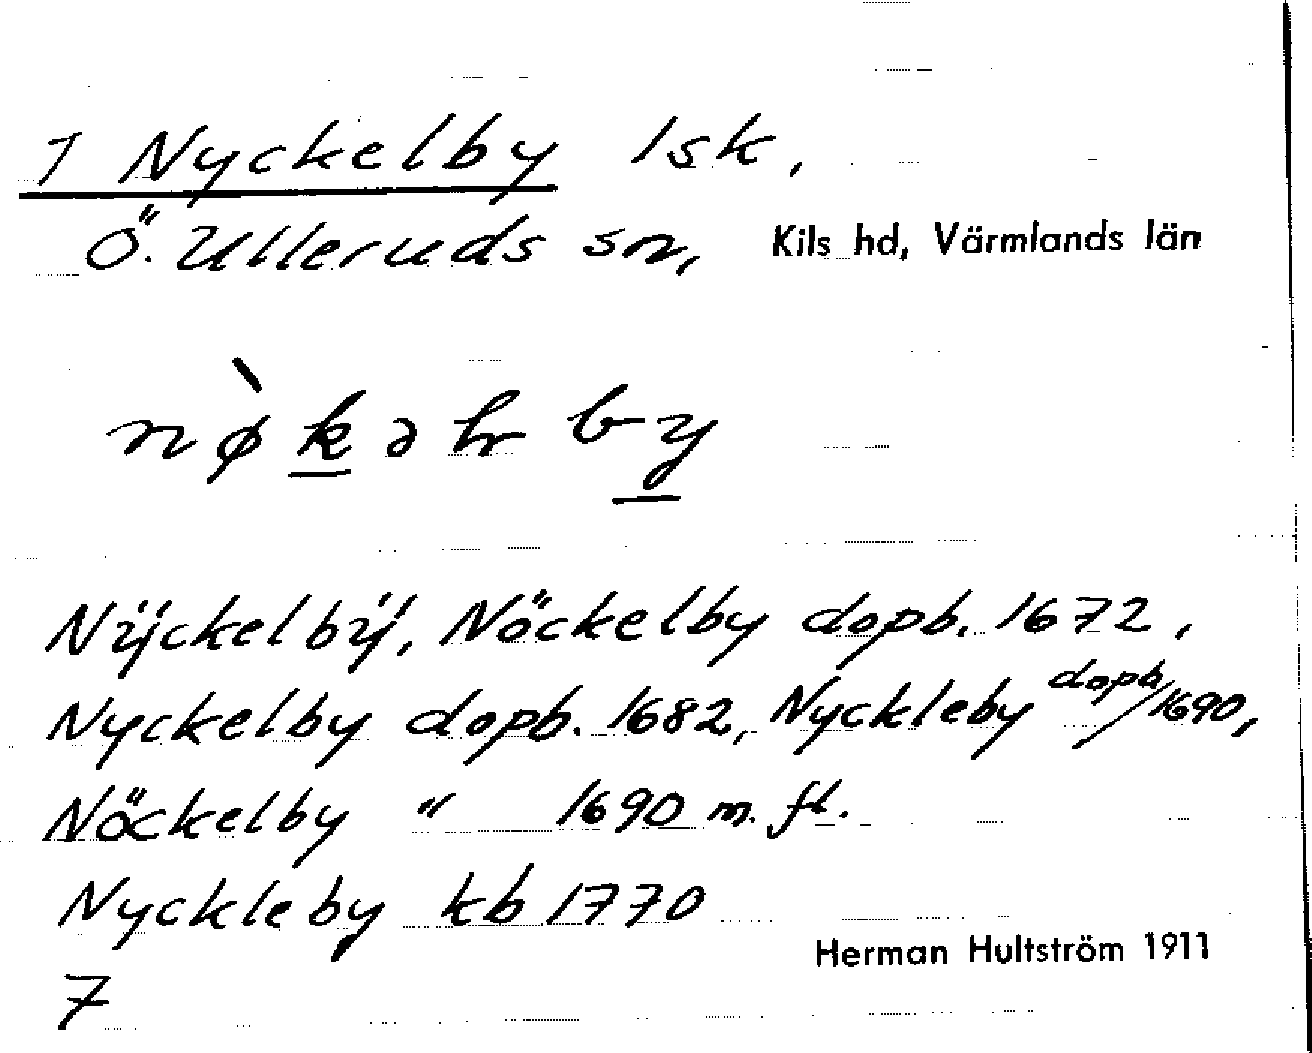 1 Nyckelby 1sk,
Ö. Ulleruds sn, Kils hd, Värmlands län
nø̀kəlby
Nÿckelbÿ, Nöckelby dopb. 1672,
Nyckelby dopb. 1682, Nyckleby dopb/1690,
Nöckelby " 1690 m. fl.
Nyckleby kb 1770
Herman Hultström 1911
7